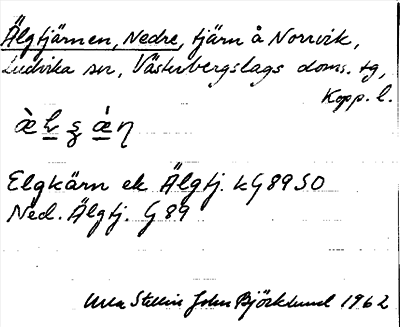 Älgtjärnen, Nedre, tjärn å Norrvik,
Ludvika sn, Västerbergslags doms. tg,
Kopp. l.
Elgkärn ek Älgtj. kG 89 SO
Ned. Älgtj. G 89
Stellin John Björklund 1962